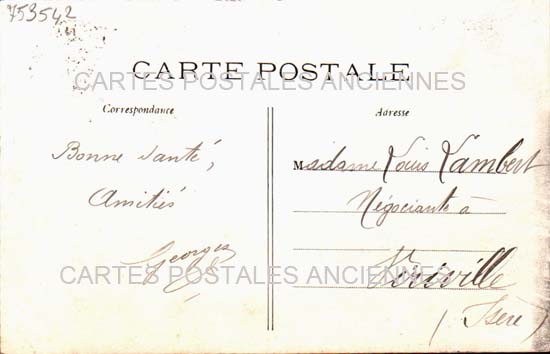 753542
CARTE POSTALE
CARTES POSTALES ANCIENNES
Correspondance
Adresse
Bonne santé,
Amitiés
Georges
Madame Louis Lambert
Négociante à
Viriville
(Isère)
CARTES POSTALES ANCIENNES